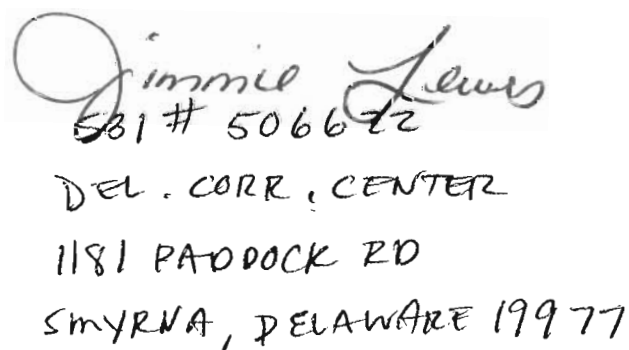 Jimmie Lewis
SBI # 506622
DEL. CORR. CENTER
1181 PADDOCK RD
SMYRNA, DELAWARE 19977